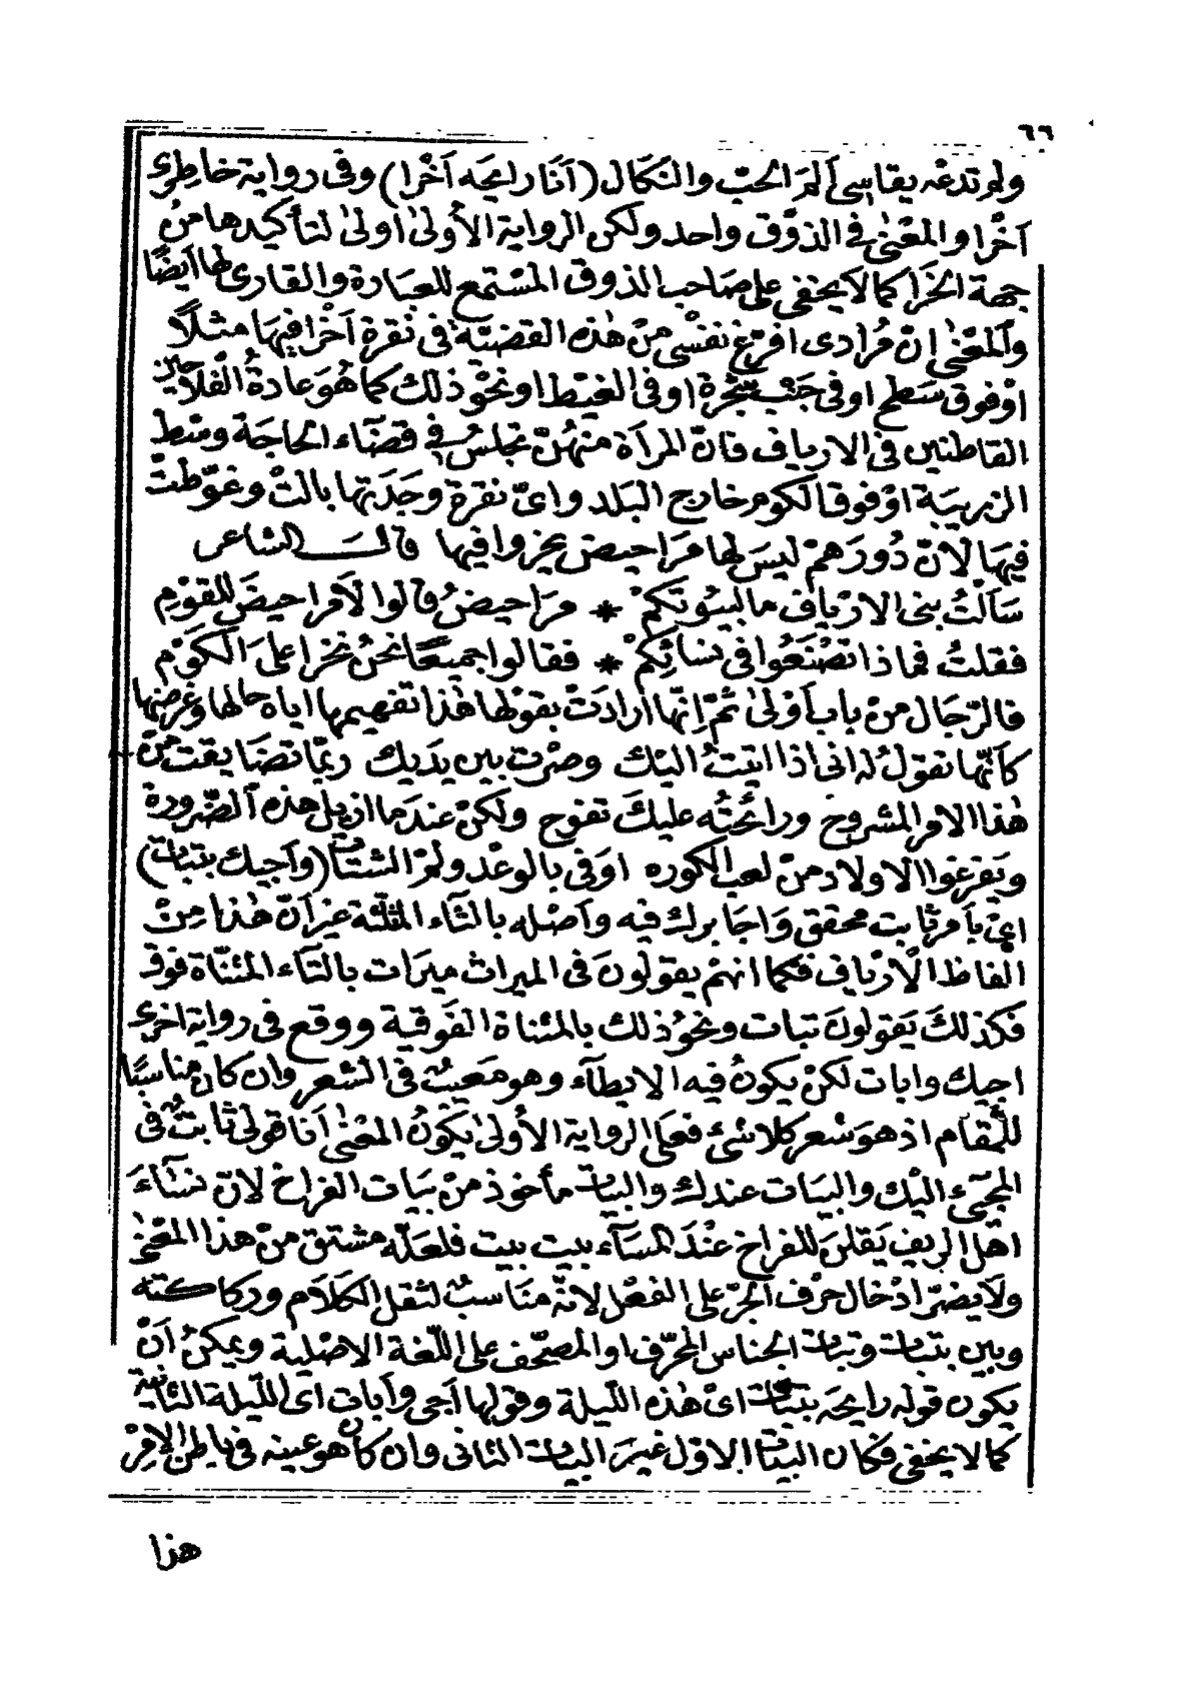 ٦٦
ولم تدعه يقاسى ألمَ الحبّ والنَكال (اَنا رايحَه اَخْرا) وفى رواية خاطِرى
اَخْرا والمعْنىٰ فى الذوْق واحد ولكن الرواية الأُولىٰ اولىٰ لتأكيدها منْ
جهة الخَرا كما لا يخفى على صَاحب الذوق المسْتمع للعبَارة والقارى لها ايضًا
واَلمعْنىٰ اِنّ مُرادى افرّغ نفسْى منْ هٰذه القضيّة فى نقرة اَخْرا فيهَا مثلًا
اوْ فوق سَطح او فى جَنْب شجْرة او فى الغيْط او نحْو ذلك كما هُوَ عادةُ الفلّاحين
القاطنين فى الارياف فانّ المرأة منهُنّ تجلسُ فى قضَآء الحاجَة وسْط
الزريبَة اوْ فوق الكوم خارج البَلد واىّ نقرة وجَدَتها بالتْ وغوّطتْ
فيهَا لاَنّ دُورَهمْ ليسَ لها مَراحيض يخروا فيها قالـــــ الشاعر
سَألتُ بنى الارْياف ما لبيُوتكمْ * مرَاحيضُ قالوا لاَ مراحيضَ للقوْمِ
فقلتُ فماذا تصْنَعُوا فى نسائكِمْ * فقالوا جميعًا نحنُ نخرا علَى الكوْم
فالرّجَال منْ باب اَوْلىٰ ثمّ اِنّها اَرادَتْ بقوْلها هٰذا تفهيمها اياه حالها وغرضها
كأَنّها تقولُ له انى اذا اتيتُ اليْك وصرْت بين يدَيك ربمّا تضَايقت منْ
هٰذا الامر المشروح ورائحتُه عليكَ تفوح ولكنْ عندَما ازيل هذه اَلضّرورة
ويَفرغوا الاولاد منْ لعب الكوره اوَفى بالوعْد ولمّ الشتات (واَجيك بتبات)
اىْ بأَمر ثابت محقق وَاجَابرك فيه وأَصْله بالثآء المثلّثة غيرَ اَنّ هٰذا منْ
الفاظ الاَرْياف فكما انهمْ يقولونَ فى الميراث ميرَات بالتآء المثنّاة فوق
فكذلكَ يَقولونَ تبات ونحوُ ذلك بالمثناة الفَوقية ووقع فى رواية اخرى
اجيك وابات لكنْ يكونُ فيه الايطآء وهو معَيبٌ فى الشعر وان كان مناسبًا
للمقام اذ هوَ شعر كلا شئ فعلى الرواية الأولىٰ يكونُ المعْنىٰ اَنا قولى ثابتٌ فى
المجىء اليْك والبيَات عندك والبيات مأخوذ منْ بيَات الفراخ لانّ نسَآءَ
اهْل الريف يَقلنَ للفراخ عنْدَ المسَآء بيت بيت فلعَلّه مشتق منْ هذا المعْنىٰ
ولاَ يضرّ ادْخال حرْف الجرّ على الفعْل لانّهُ منَاسبٌ لثقل الكلاَم وركاكته
وبين بتبات وتبات الجناس المحرّف او المصحّف على اللّغة الاصْلية ويمكنُ اَنْ
يكون قوله رايحَه بتبات اىْ هٰذه اللّيلة وقولها أجى وأبات اى الليلة الثانية
كما لا يخفى فكان البيات الاوّل غيرَ البيات الثانى وان كان هو عينه فى باطن الامْرِ
هذا